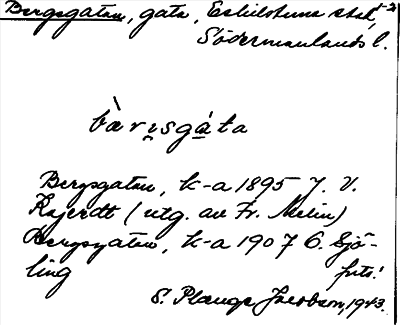 Bergsgatan, gata, Eskilstuna stad,
Södermanlands l.
bæ̀rısgáta
Bergsgatan, k-a 1895 J. V.
(utg. av Fr. Melin)
Bergsgatan, k-a 1907 C. Sjö-
ling
forts!
S. Plænge Jacobson, 1943.